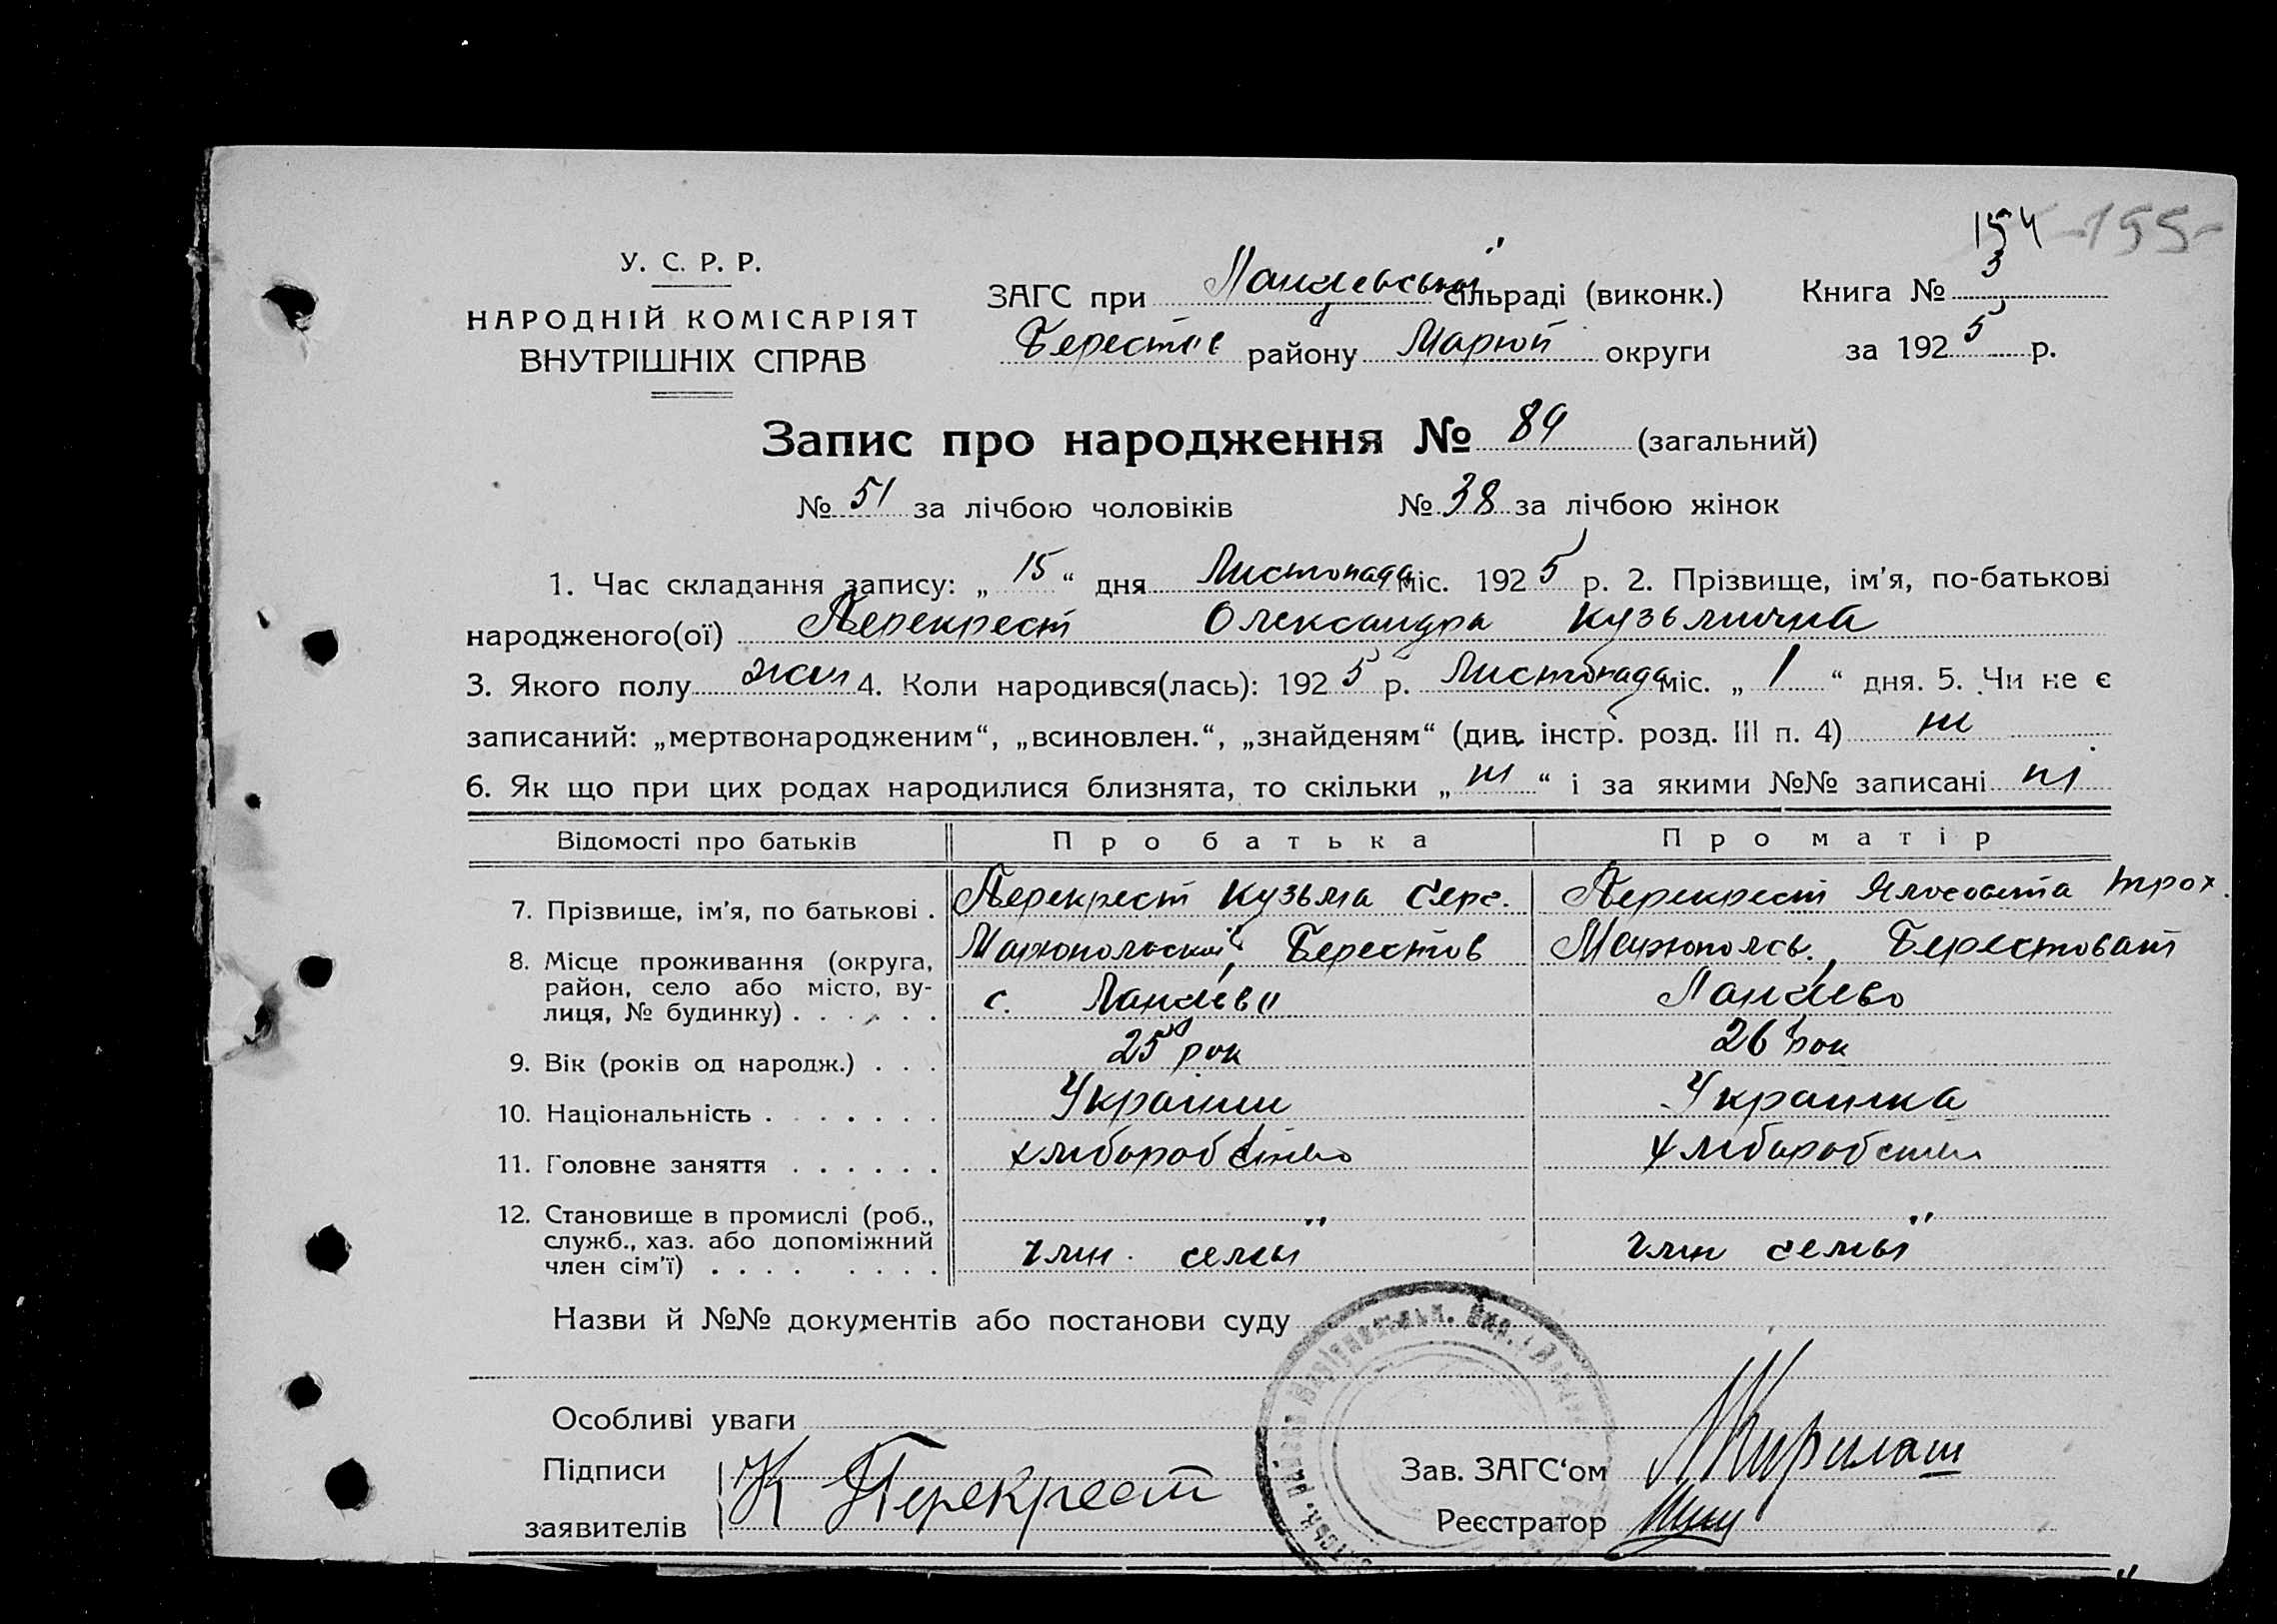 154 -155-
У. С. Р. Р.
НАРОДНІЙ КОМІСАРІЯТ
ВНУТРІШНІХ СПРАВ
ЗАГС при сільраді (виконк.) Книга № 3
Берестів району Маріюп округи за 1925 р.
Запис про народження № 89 (загальний)
№ 51 за лічбою чоловіків № 38 за лічбою жінок
1. Час складання запису: „15“ дня Листопада міс. 1925 р. 2. Прізвище, ім’я, по-батькові
народженого(ої) Перекрест Олександра Кузьмична
3. Якого полу жін 4. Коли народився(лась): 1925 р. Листопада міс. „1“ дня. 5. Чи не є
записаний: „мертвонародженим“, „всиновлен.“, „знайденям“ (див. інстр. розд. III п. 4) ні
6. Як що при цих родах народилися близнята, то скільки „ні“ і за якими №№ записані ні
Відомості про батьків Про батька Про матір
7. Прізвище, ім’я, по батькові . Перекрест Кузьма Серг. Перекрест Трох.
8. Місце проживання (округа, Берестов
район, село або місто, ву- с.
лиця, № будинку) . . . . . .
9. Вік (років од народж.) . . . 25 рок 26 рок
10. Національність . . . . . . . Українка
11. Головне заняття . . . . . . хліборобство хліборобство
12. Становище в промислі (роб., „ „
служб., хаз. або допоміжний член семьи член семьи
член сім’ї) . . . . . . . .
Назви й №№ документів або постанови суду
Особливі уваги
Підписи К Перекрест Зав. ЗАГС‘ом
заявителів Реєстратор